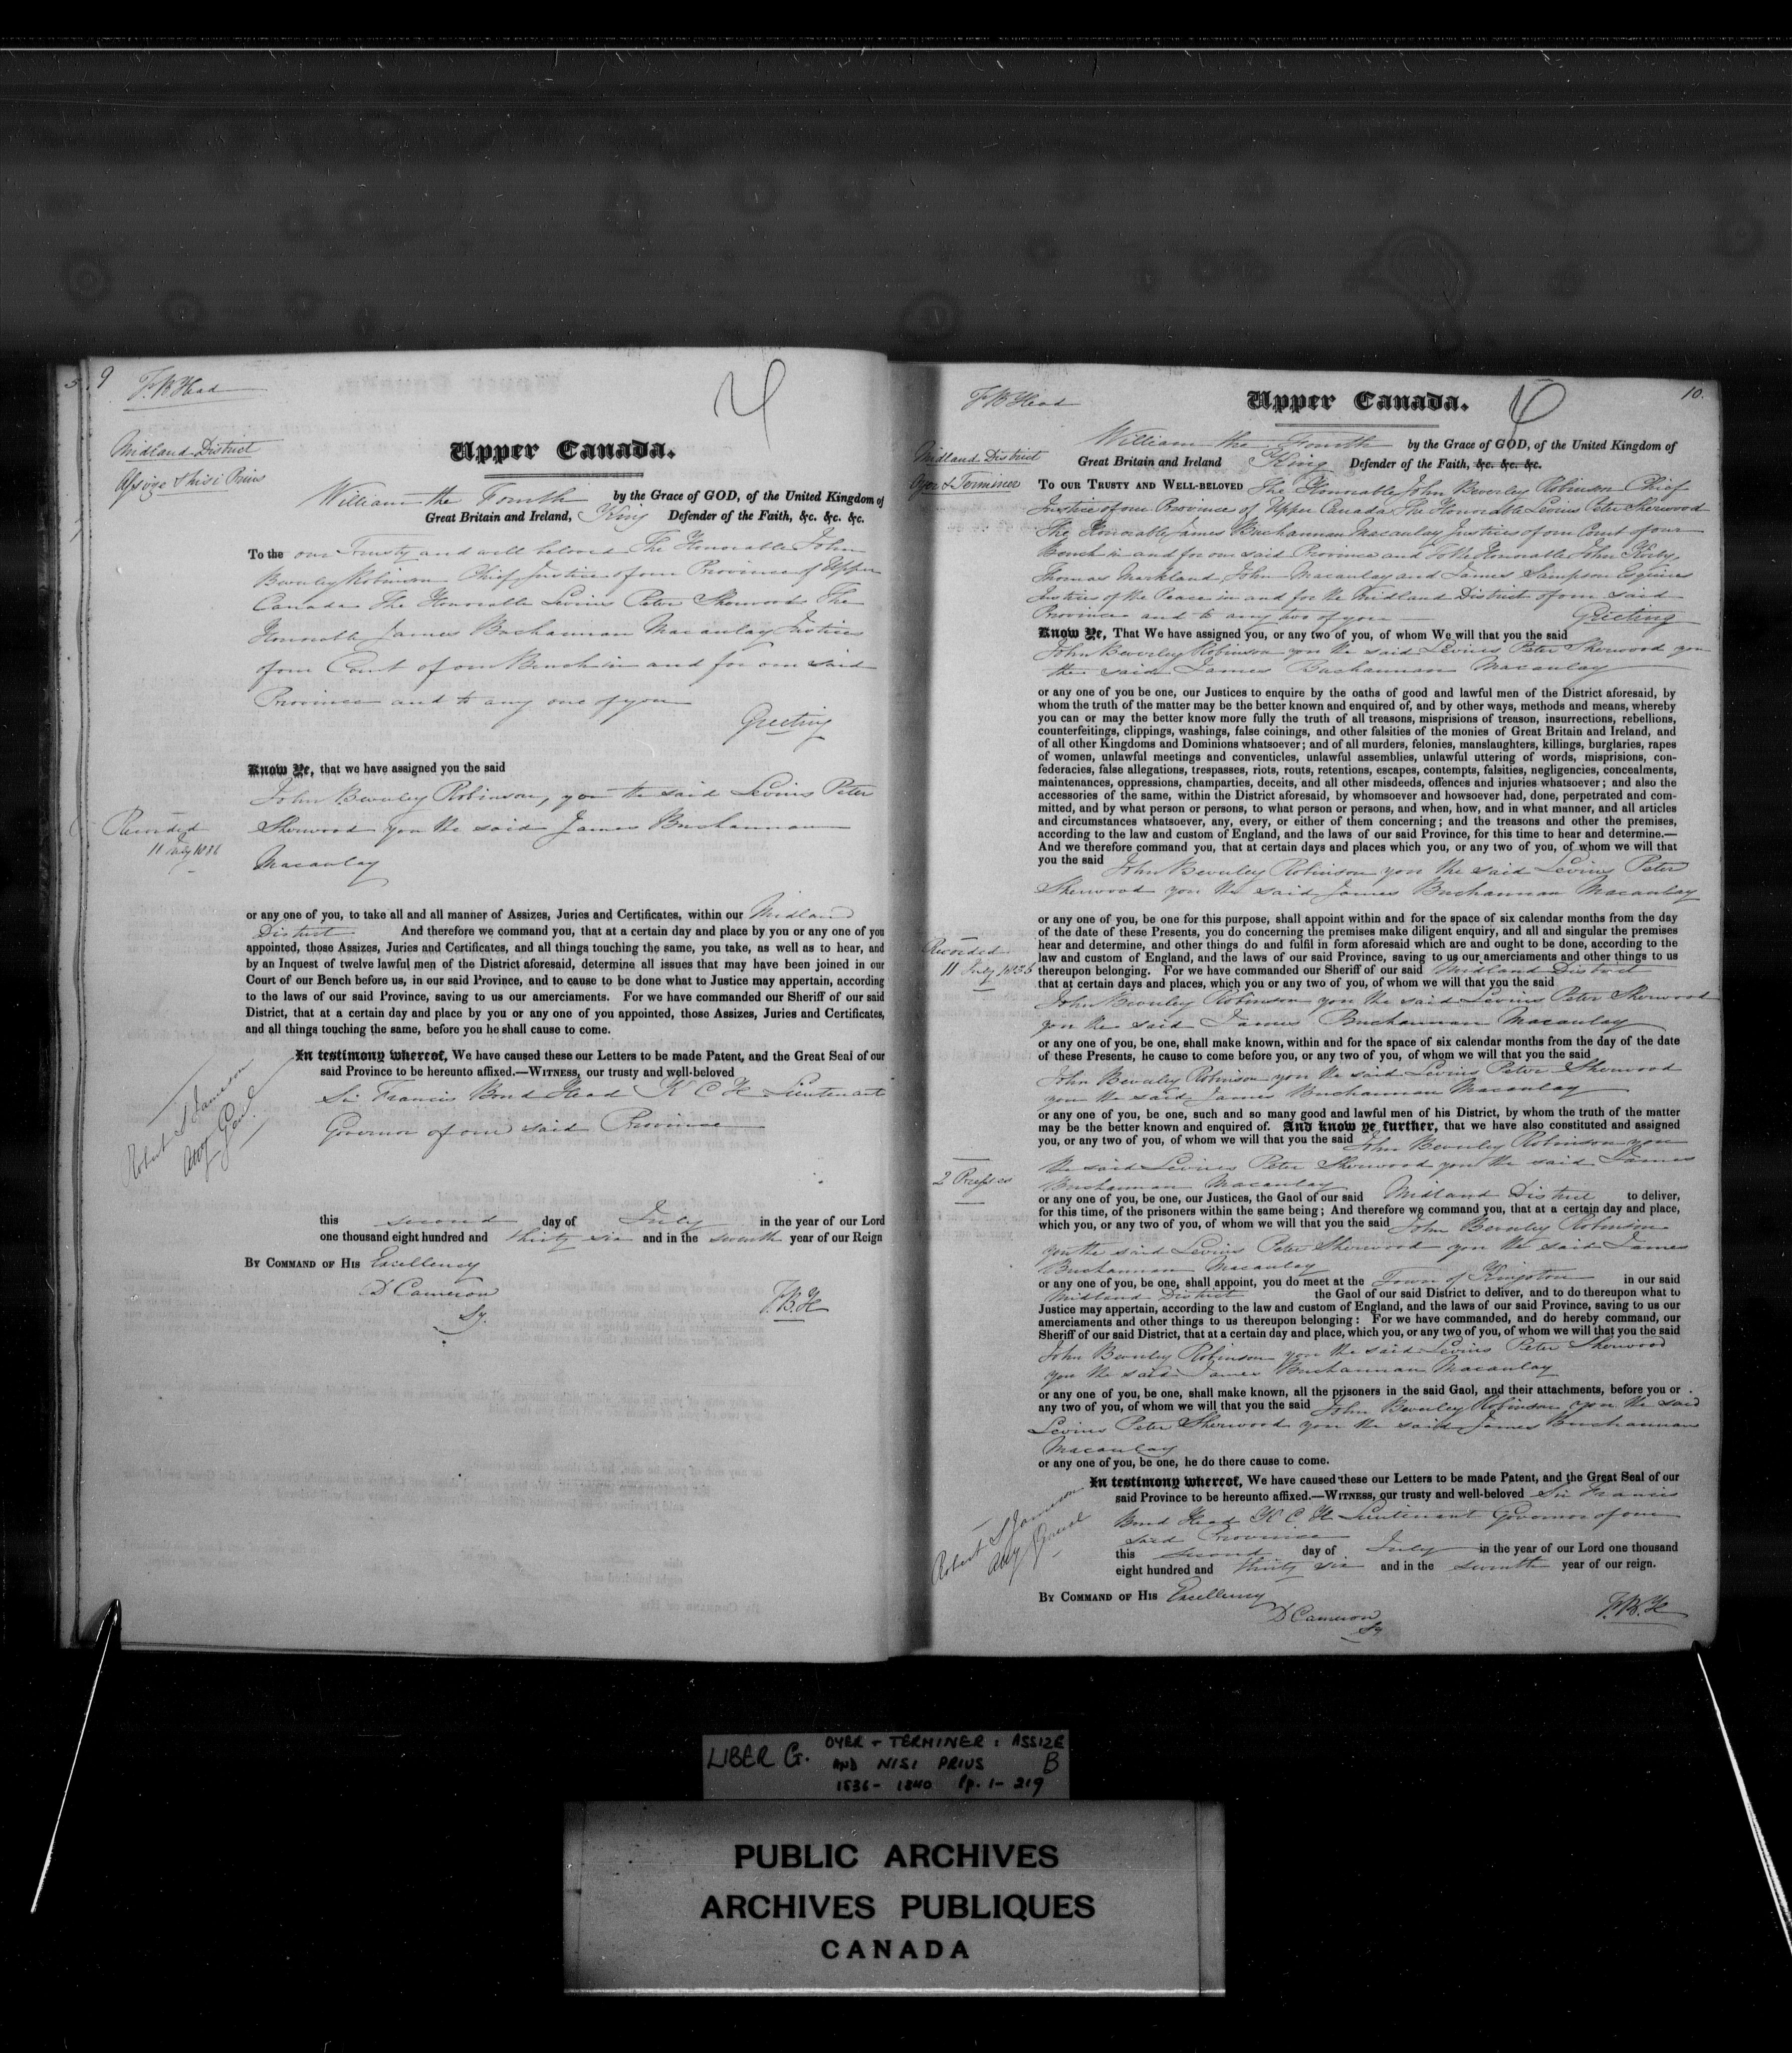 9
F. B Head
Midland District
Assize & Nisi Prius
Upper Canada.
William the Fourth by the Grace of GOD, of the United Kingdom of
Great Britain and Ireland, King Defender of the Faith, &c. &c. &c.
To the our Trusty and well beloved The Honorable John
Beverley Robinson Chief Justice of our Province of Upper
Canada The Honorable Levius Peter Sherwood The
Honorable James Buchannan Macaulay Justices
of our Court of our Bench in and for our said
Province and to any one of you
Greeting
Know Ye, that we have assigned you the said
John Beverley Robinson, you the said Levius Peter
Sherwood you the said James Buchannan
Macaulay
Recorded
11 July 1836
or any one of you, to take all and all manner of Assizes, Juries and Certificates, within our Midland
District And therefore we command you, that at a certain day and place by you or any one of you
appointed, those Assizes, Juries and Certificates, and all things touching the same, you take, as well as to hear, and
by an Inquest of twelve lawful men of the District aforesaid, determine all issues that may have been joined in our
Court of our Bench before us, in our said Province, and to cause to be done what to Justice may appertain, according
to the laws of our said Province, saving to us our amerciaments. For we have commanded our Sheriff of our said
District, that at a certain day and place by you or any one of you appointed, those Assizes, Juries and Certificates,
and all things touching the same, before you he shall cause to come.
In testimony whereof, We have caused these our Letters to be made Patent, and the Great Seal of our
said Province to be hereunto affixed.—WITNESS, our trusty and well-beloved
Sir Francis Bond Head K C H Lieutenant
Governor of our said Province
Robert S Jameson
Atty Genl.
this second day of July in the year of our Lord
one thousand eight hundred and thirty six and in the seventh year of our Reign
BY COMMAND OF HIS Excellency
D Cameron
Sy.
F.B.H
10.
F B Head
Midland District
Oyer & Terminer
Upper Canada.
William the Fourth by the Grace of GOD, of the United Kingdom of
Great Britain and Ireland King Defender of the Faith, &c. &c. &c.
TO OUR TRUSTY AND WELL-BELOVED The Honorable John Beverley Robinson Chief
Justice of our Province of Upper Canada The Honorable Levius Peter Sherwood
The Honorable James Buchannan Macaulay Justices of our Court of our
Bench in and for our said Province and to the Honorable John Kirby
Thomas Markland John Macaulay and James Sampson Esquires
Justices of the Peace in and for the Midland District of our said
Province and to any two of you Greeting
Know Ye, That We have assigned you, or any two of you, of whom We will that you the said
John Beverley Robinson you the said Levius Peter Sherwood you
the said James Buchannan Macaulay
or any one of you be one, our Justices to enquire by the oaths of good and lawful men of the District aforesaid, by
whom the truth of the matter may be the better known and enquired of, and by other ways, methods and means, whereby
you can or may the better know more fully the truth of all treasons, misprisions of treason, insurrections, rebellions,
counterfeitings, clippings, washings, false coinings, and other falsities of the monies of Great Britain and Ireland, and
of all other Kingdoms and Dominions whatsoever; and of all murders, felonies, manslaughters, killings, burglaries, rapes
of women, unlawful meetings and conventicles, unlawful assemblies, unlawful uttering of words, misprisions, con-
federacies, false allegations, trespasses, riots, routs, retentions, escapes, contempts, falsities, negligencies, concealments,
maintenances, oppressions, champarties, deceits, and all other misdeeds, offences and injuries whatsoever; and also the
accessories of the same, within the District aforesaid, by whomsoever and howsoever had, done, perpetrated and com-
mitted, and by what person or persons, to what person or persons, and when, how, and in what manner, and all articles
and circumstances whatsoever, any, every, or either of them concerning; and the treasons and other the premises,
according to the law and custom of England, and the laws of our said Province, for this time to hear and determine.—
And we therefore command you, that at certain days and places which you, or any two of you, of whom we will that
you the said John Beverley Robinson you the said Levius Peter
Sherwood you the said James Buchannan Macaulay
or any one of you, be one for this purpose, shall appoint within and for the space of six calendar months from the day
of the date of these Presents, you do concerning the premises make diligent enquiry, and all and singular the premises
hear and determine, and other things do and fulfil in form aforesaid which are and ought to be done, according to the
law and custom of England, and the laws of our said Province, saving to us our amerciaments and other things to us
thereupon belonging. For we have commanded our Sheriff of our said Midland District
Recorded
11 July 1836
that at certain days and places, which you, or any two of you, of whom we will that you the said
John Beverley Robinson you the said Levius Peter Sherwood
you the said James Buchannan Macaulay
or any one of you, be one, shall make known, within and for the space of six calendar months from the day of the date
of these Presents, he cause to come before you, or any two of you, of whom we will that you the said
John Beverley Robinson you the said Levius Peter Sherwood
you the said James Buchannan Macaulay
or any one of you, be one, such and so many good and lawful men of his District, by whom the truth of the matter
may be the better known and enquired of. And know ye further, that we have also constituted and assigned
you, or any two of you, of whom we will that you the said John Beverley Robinson you
the said Levius Peter Sherwood you the said James
Buchannan Macaulay
2
or any one of you, be one, our Justices, the Gaol of our said Midland District to deliver,
for this time, of the prisoners within the same being; And therefore we command you, that at a certain day and place,
which you, or any two of you, of whom we will that you the said John Beverley Robinson
you the said Levius Peter Sherwood you the said James
Buchannan Macaulay
or any one of you, be one, shall appoint, you do meet at the Town of Kingston in our said
Midland District the Gaol of our said District to deliver, and to do thereupon what to
Justice may appertain, according to the law and custom of England, and the laws of our said Province, saving to us our
amerciaments and other things to us thereupon belonging: For we have commanded, and do hereby command, our
Sheriff of our said District, that at a certain day and place, which you, or any two of you, of whom we will that you the said
John Beverley Robinson you the said Levius Peter Sherwood
you the said James Buchannan Macaulay
or any one of you, be one, shall make known, all the prisoners in the said Gaol, and their attachments, before you or
any two of you, of whom we will that you the said John Beverley Robinson you the said
Levius Peter Sherwood you the said James Buchannan
Macaulay
or any one of you, be one, he do there cause to come.
In testimony whereof, We have caused these our Letters to be made Patent, and the Great Seal of our
said Province to be hereunto affixed.—WITNESS, our trusty and well-beloved Sir Francis
Bond Head K C H Lieutenant Governor of our
said Province
Robert S Jameson
Atty Genl
this second day of July in the year of our Lord one thousand
eight hundred and thirty six and in the seventh year of our reign.
BY COMMAND OF HIS Excellency
D Cameron
Sy
F.B.H
LIBER G. OYER + TERMINER: ASSIZE
AND NISI PRIUS B
1836-1840 Pp. 1-219
PUBLIC ARCHIVES
ARCHIVES PUBLIQUES
CANADA